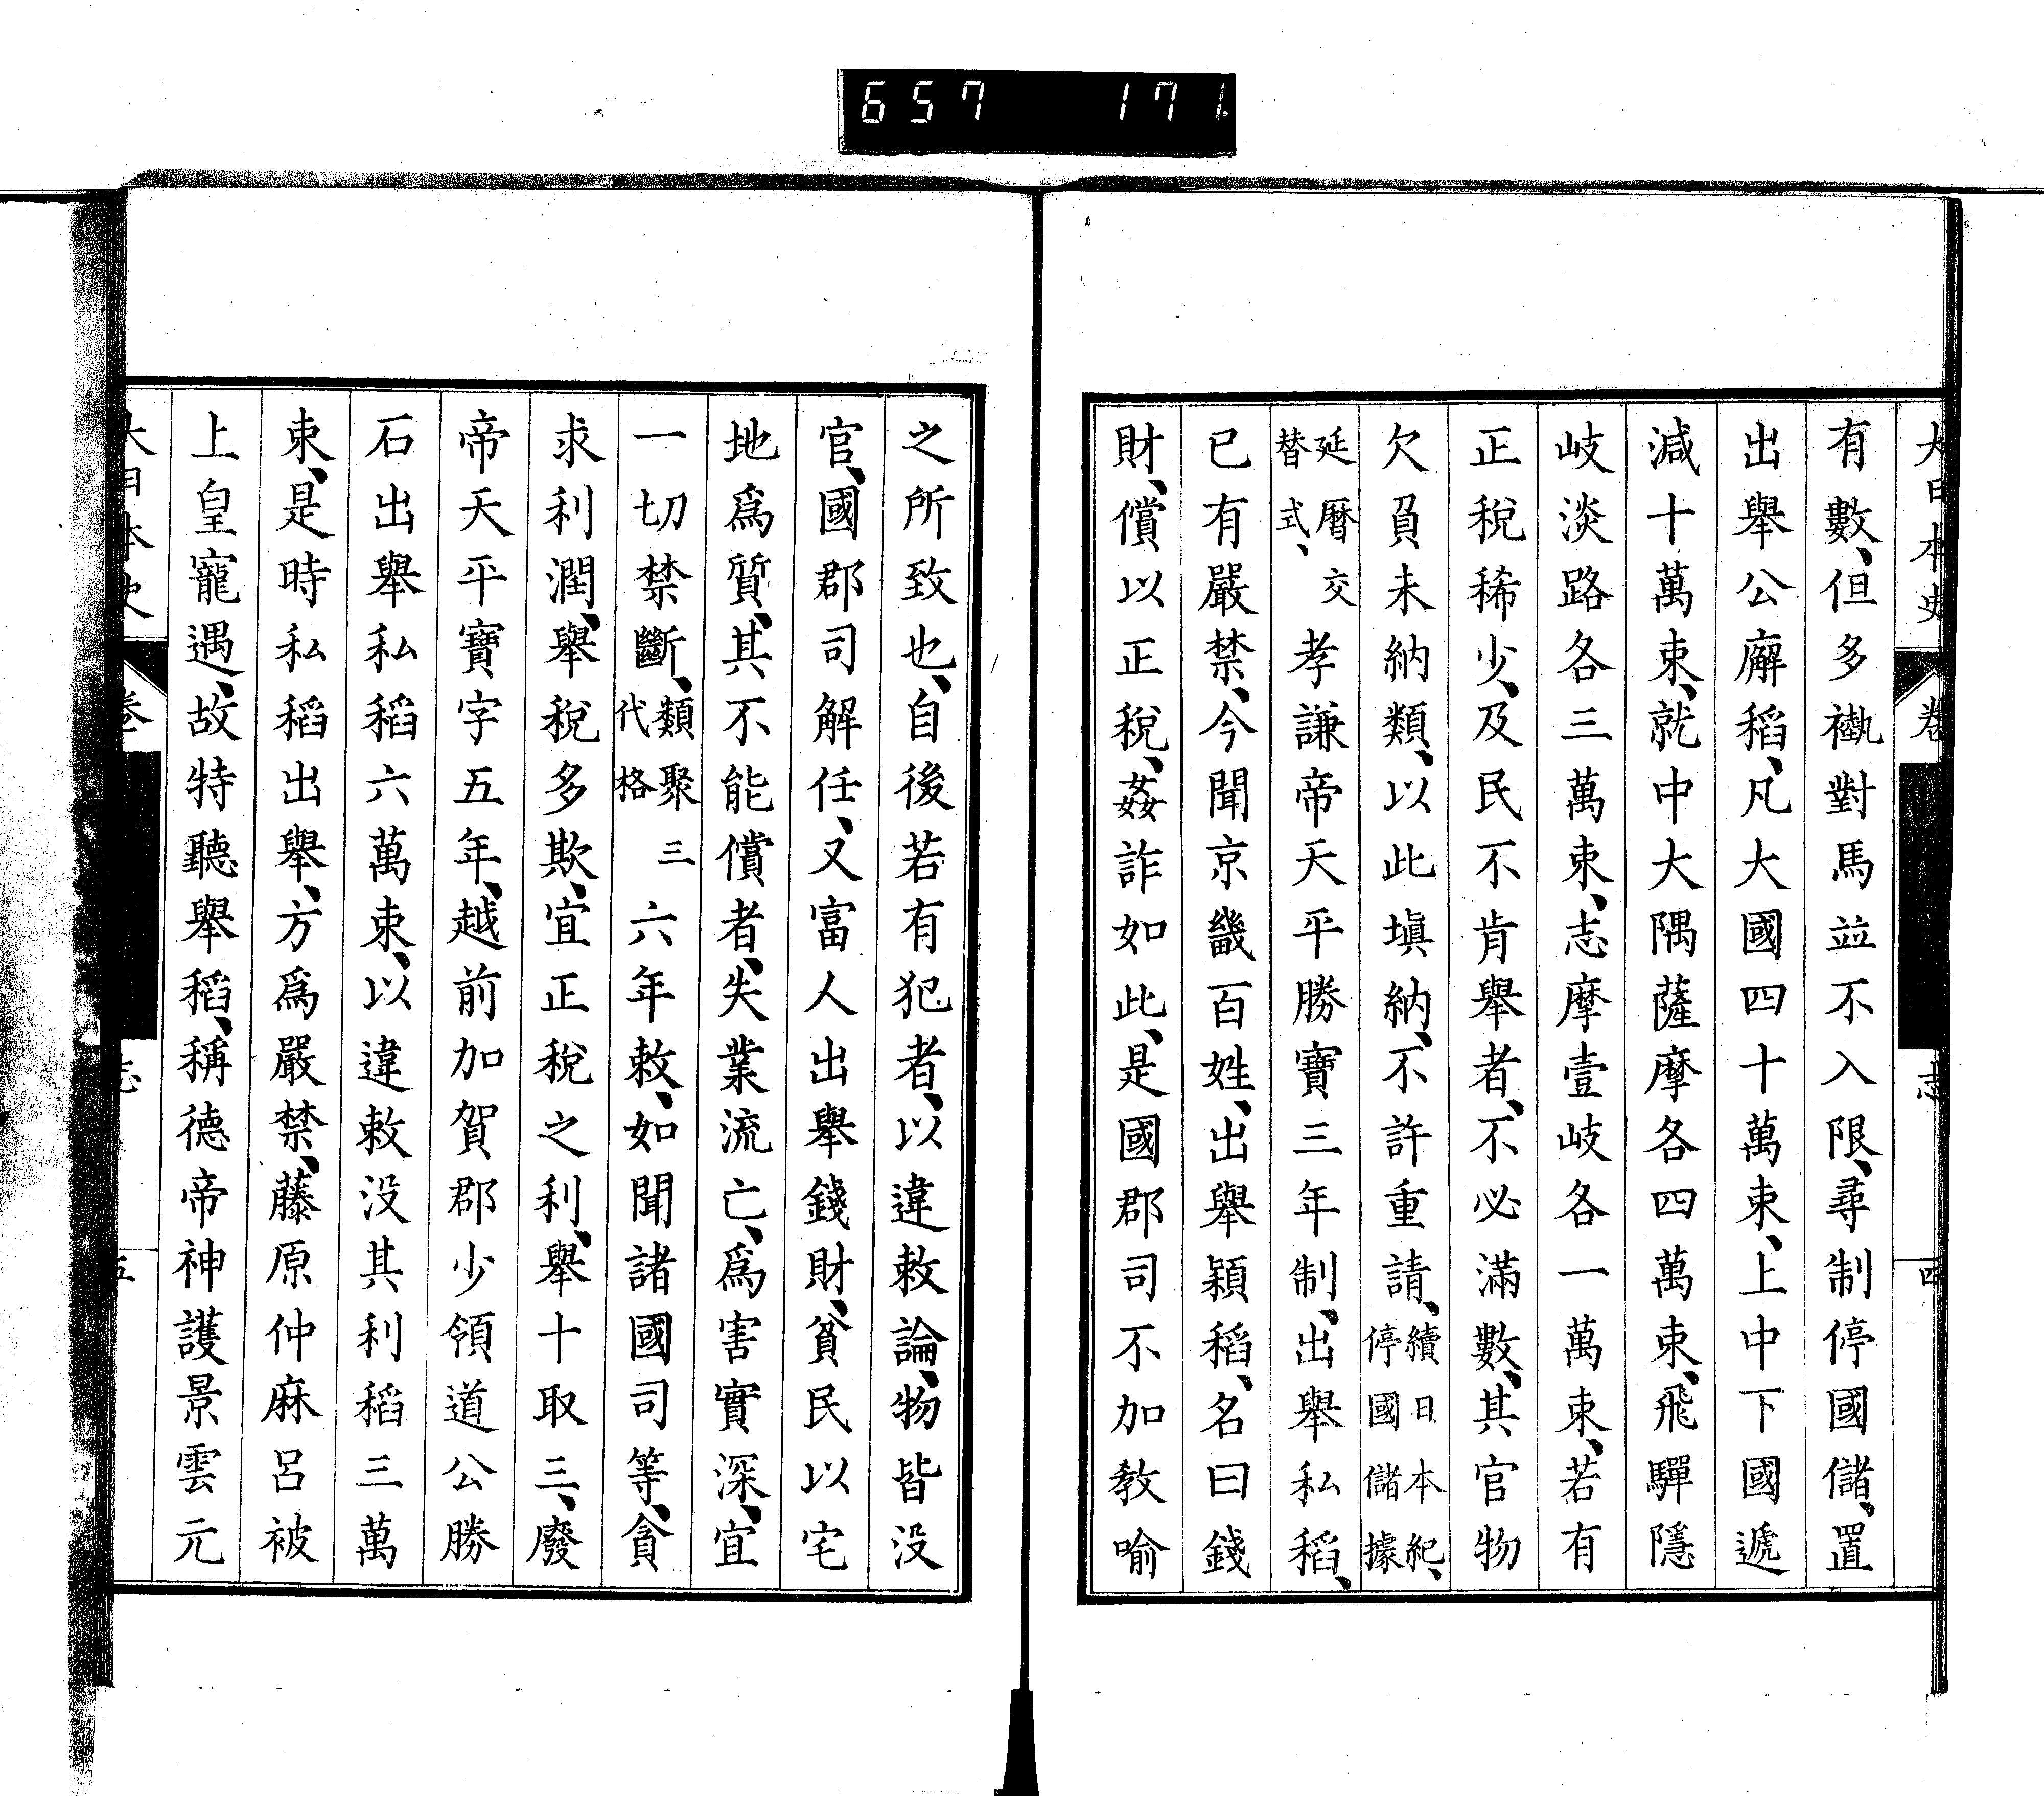 657 171
大日本史 卷 志 四
有數、但多褹對馬竝不入限、尋制停國儲、置
出舉公廨稻、凡大國四十萬束、上中下國遞
減十萬束、就中大隅薩摩各四萬束、飛驒隱
岐淡路各三萬束、志摩壹岐各一萬束、若有
正稅稀少、及民不肯舉者、不必滿數、其官物
欠負未納類、以此塡納、不許重請、續日本紀、停國儲據
延曆交替式、孝謙帝天平勝寶三年制、出舉私稻、
已有嚴禁、今聞京畿百姓、出舉穎稻、名曰錢
財、償以正稅、姦詐如此、是國郡司不加敎喻
之所致也、自後若有犯者、以違敕論、物皆没
官、國郡司解任、又富人出舉錢財、貧民以宅
地爲質、其不能償者、失業流亡、爲害實深、宜
一切禁斷、類聚三代格 六年敕、如聞諸國司等、貪
求利潤、舉稅多欺、宜正稅之利、舉十取三、廢
帝天平寶字五年、越前加賀郡少領道公勝
石出舉私稻六萬束、以違敕没其利稻三萬
束、是時私稻出舉、方爲嚴禁、藤原仲麻呂被
上皇寵遇、故特聽舉稻、稱德帝神護景雲元
大日本史 卷 志 五